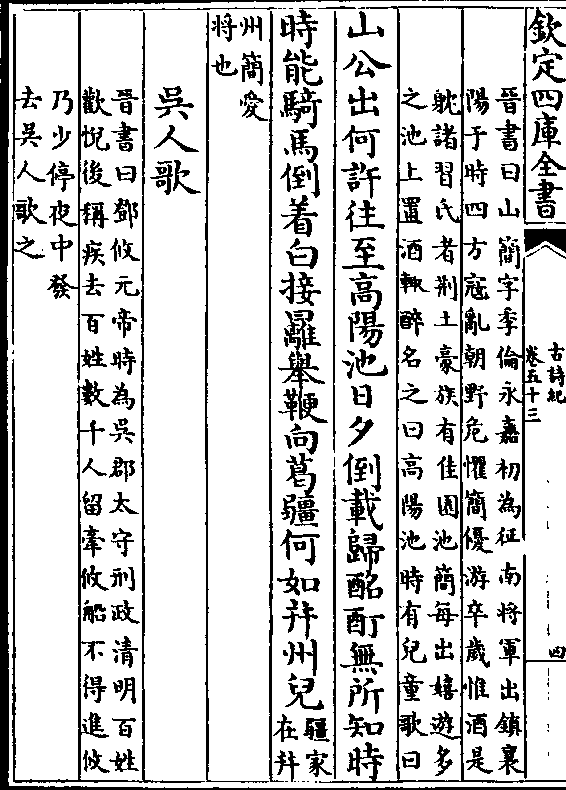 欽定四庫全書
古詩紀
卷五十三
四
晉書曰山簡字季倫永嘉初為征南將軍出鎮襄
陽于時四方寇亂朝野危懼簡優游卒歲惟酒是
躭諸習氏者荆土豪族有佳園池簡每出嬉遊多
之池上置酒輒醉名之曰高陽池時有兒童歌曰
山公出何許往至高陽池日夕倒載歸酩酊無所知時
時能騎馬倒着白接䍦舉鞭向葛彊何如幷州兒疆家
在幷
州簡愛
將也
吳人歌
晉書曰鄧攸元帝時為吳郡太守刑政清明百姓
歡悅後稱疾去百姓數千人留牽攸船不得進攸
乃少停夜中發
去吳人歌之